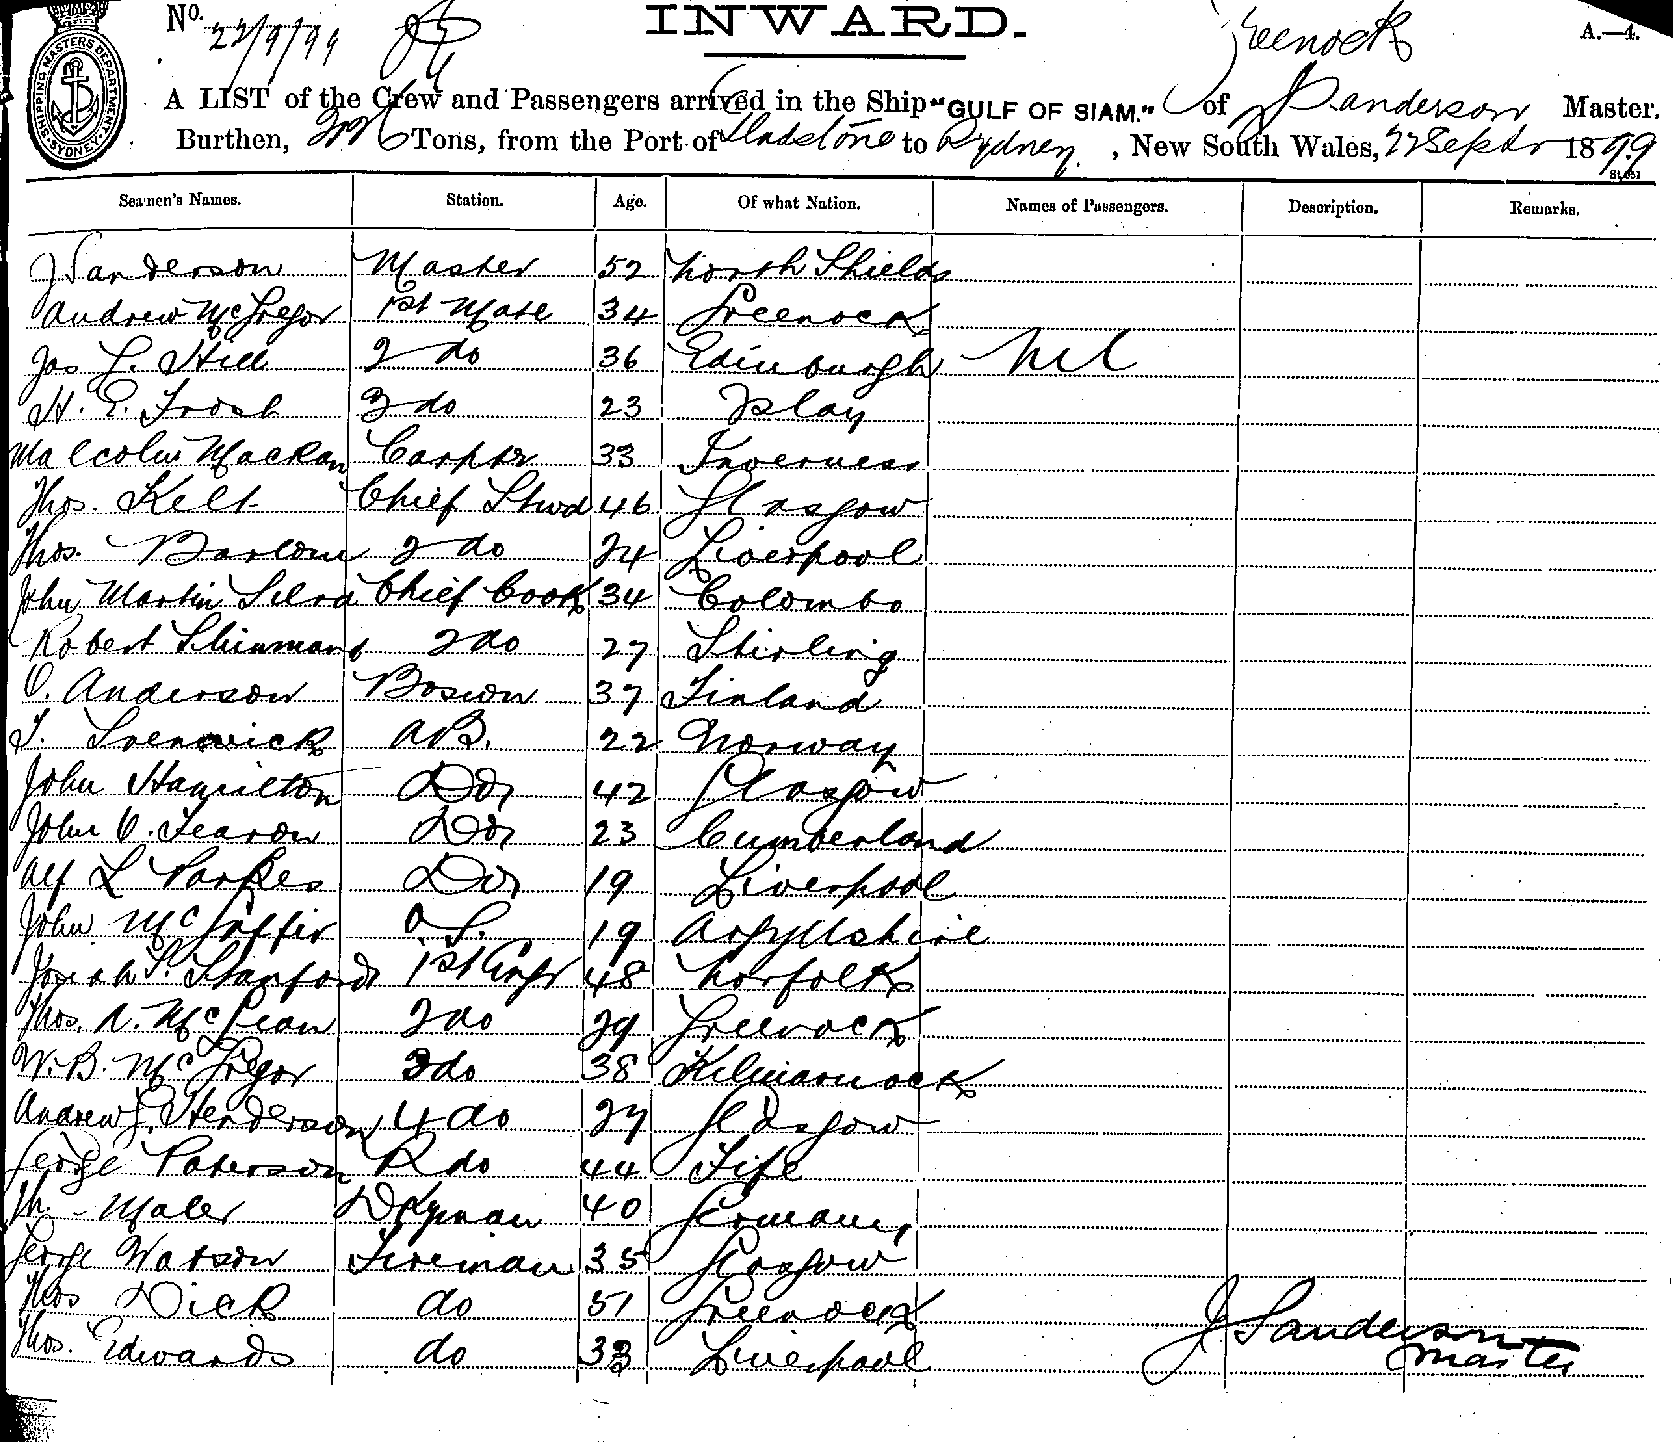 No. 22/9/99 INWARD. Greenock A.—4.
SHIPPING MASTERS DEPARTMENT SYDNEY
A LIST of the Crew and Passengers arrived in the Ship "GULF OF SIAM." of J Sanderson Master.
Burthen, Tons, from the Port of Gladstone to Sydney, New South Wales, 22 Septr 1899
Seamen's Names. Station. Age. Of what Nation. Names of Passengers. Description. Remarks.
J Sanderson Master 52 North Shields
Andrew McGregor 1st Mate 34 Greenock
Jas L. Hill 2 do 36 Edinburgh Nil
H. E. Frost 3 do 23 Islay
Malcolm Mackan Carptr 33 Inverness
Thos. Kelt Chief Stwd 46 Glasgow
Thos. Barlow 2 do 24 Liverpool
John Martin Silva Chief Cook 34 Colombo
Robert 2 do 27 Stirling
O. Anderson Boswn 37 Finland
A.B. 22 Norway
John Hamilton Do 42 Glasgow
John O. Fearon Do 23 Cumberland
Alf L Parkes Do 19 Liverpool
John McGaffir O.S. 19 Argyllshire
Josiah S. Stanford 1st Engr 48 Norfolk
Thos. A. McLean 2 do 29 Greenock
W. B. McGregor 3 do 38 Kilmarnock
Andrew J. Henderson 4 do 27 Glasgow
George Paterson R do 44 Fife
Maler Dkyman 40 Germany
George Watson Fireman 35 Glasgow
Thos Dick do 51 Greenock
Thos. Edwards do 33 Liverpool
J Sanderson
Master